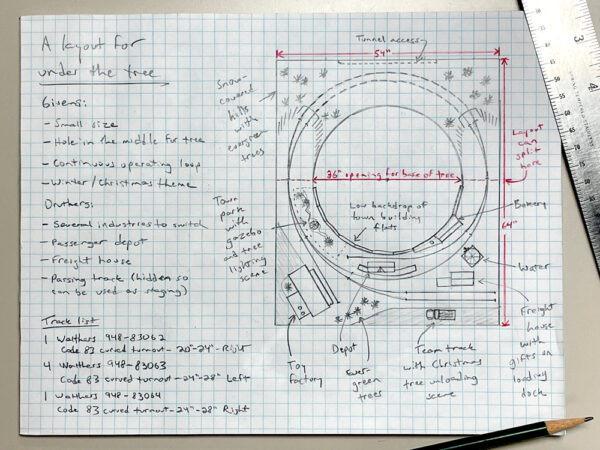 A layout for
under the tree
Givens:
- Small size
- Hole in the middle for tree
- Continuous operating loop
- Winter/Christmas theme
Druthers:
- Several industries to switch
- Passenger depot
- Freight house
- Passing track (hidden so
can be used as staging)
Track list
1 Walthers 948-83062
Code 83 curved turnout - 20"-24" - Right
4 Walthers 948-83063
Code 83 curved turnout - 24"-28" Left
1 Walthers 948-83064
Code 83 curved turnout - 24"-28" Right
Tunnel access
54"
Snow-
covered
hills
with
evergreen
trees
Layout
can
split
here
36" opening for base of tree
Low backdrop of
town building
flats
Bakery
64"
Town
park
with
gazebo
and tree
lighting
scene
Water
Toy
factory
Depot
Ever-
green
trees
Team track
with Christmas
tree unloading
scene
Freight
house
with
gifts on
loading
dock
3
4